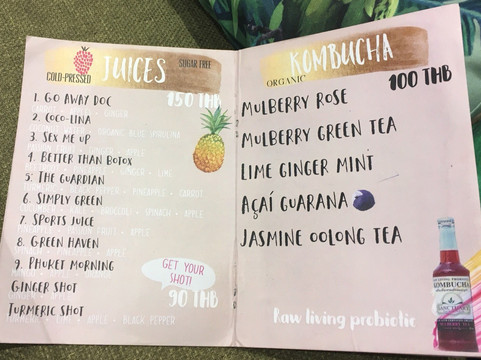 COLD-PRESSED
JUICES
SUGAR FREE
150 THB
1. GO AWAY DOC
2. COCO-LINA
3. SEX ME UP
4. BETTER THAN BOTOX
5. THE GUARDIAN
TURMERIC • BLACK PEPPER • PINEAPPLE • CARROT
6. SIMPLY GREEN
BROCCOLI • SPINACH • APPLE
7. SPORTS JUICE
8. GREEN HAVEN
9. PHUKET MORNING
GET YOUR
SHOT!
90 THB
GINGER SHOT
TURMERIC SHOT
APPLE • BLACK PEPPER
KOMBUCHA
ORGANIC
100 THB
MULBERRY ROSE
MULBERRY GREEN TEA
LIME GINGER MINT
AÇAÍ GUARANA
JASMINE OOLONG TEA
Raw living probiotic
KOMBUCHA